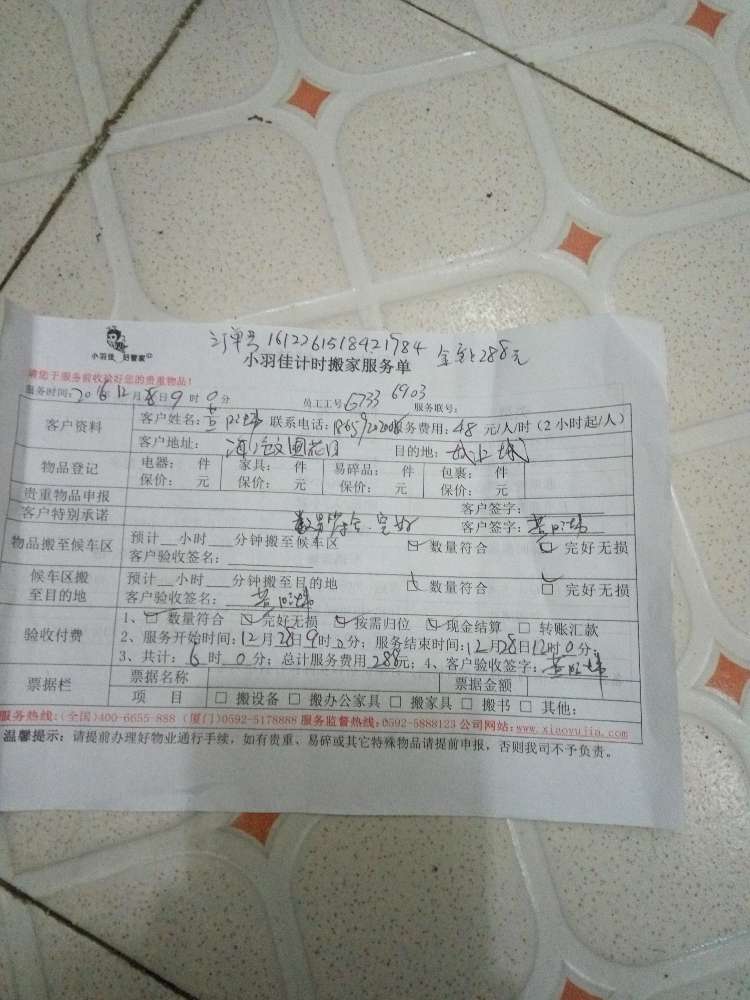 订单号 1612261518421984 金额288元
小羽佳 好管家
小羽佳计时搬家服务单
请您于服务前收检好您的贵重物品!
服务时间:2016.12月28日9时0分 员工工号6733 6903 服务联号:
客户资料
客户姓名: 联系电话: 服务费用:48元/人/时(2小时起/人)
客户地址: 目的地:
物品登记
电器: 件 家具: 件 易碎品: 件 包裹: 件
保价: 元 保价: 元 保价: 元 保价: 元
贵重物品申报 客户签字:
客户特别承诺 数量符合.完好 客户签字:
物品搬至候车区
预计__小时__分钟搬至候车区 数量符合 完好无损
客户验收签名:
候车区搬至目的地
预计__小时__分钟搬至目的地 数量符合 完好无损
客户验收签名:
验收付费
1、数量符合 完好无损 按需归位 现金结算 □ 转账汇款
2、服务开始时间:12月28日9时0分;服务结束时间:12月28日12时0分;
3、共计:6时0分;总计服务费用288元;4、客户验收签字:
票据栏
票据名称 票据金额
项 目 □ 搬设备 □ 搬办公家具 □ 搬家具 □ 搬书 □ 其他:
服务热线:(全国)400-6655-888 (厦门)0592-5178888 服务监督热线:0592-5888123 公司网站:www.xiaoyujia.com
温馨提示:请提前办理好物业通行手续,如有贵重、易碎或其它特殊物品请提前申报,否则我司不予负责。